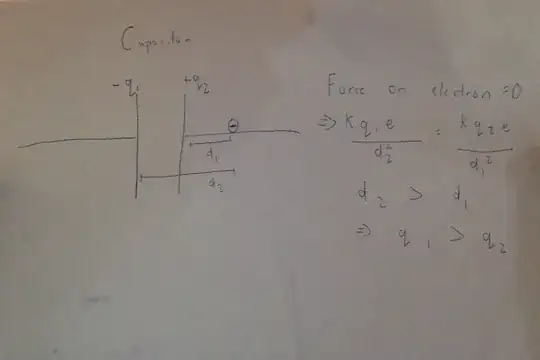 Capacitor
-q1 +q2
⊖
d1
d2
Force on electron =0
⇒ kq1e/d2² = kq2e/d1²
d2 > d1
⇒ q1 > q2